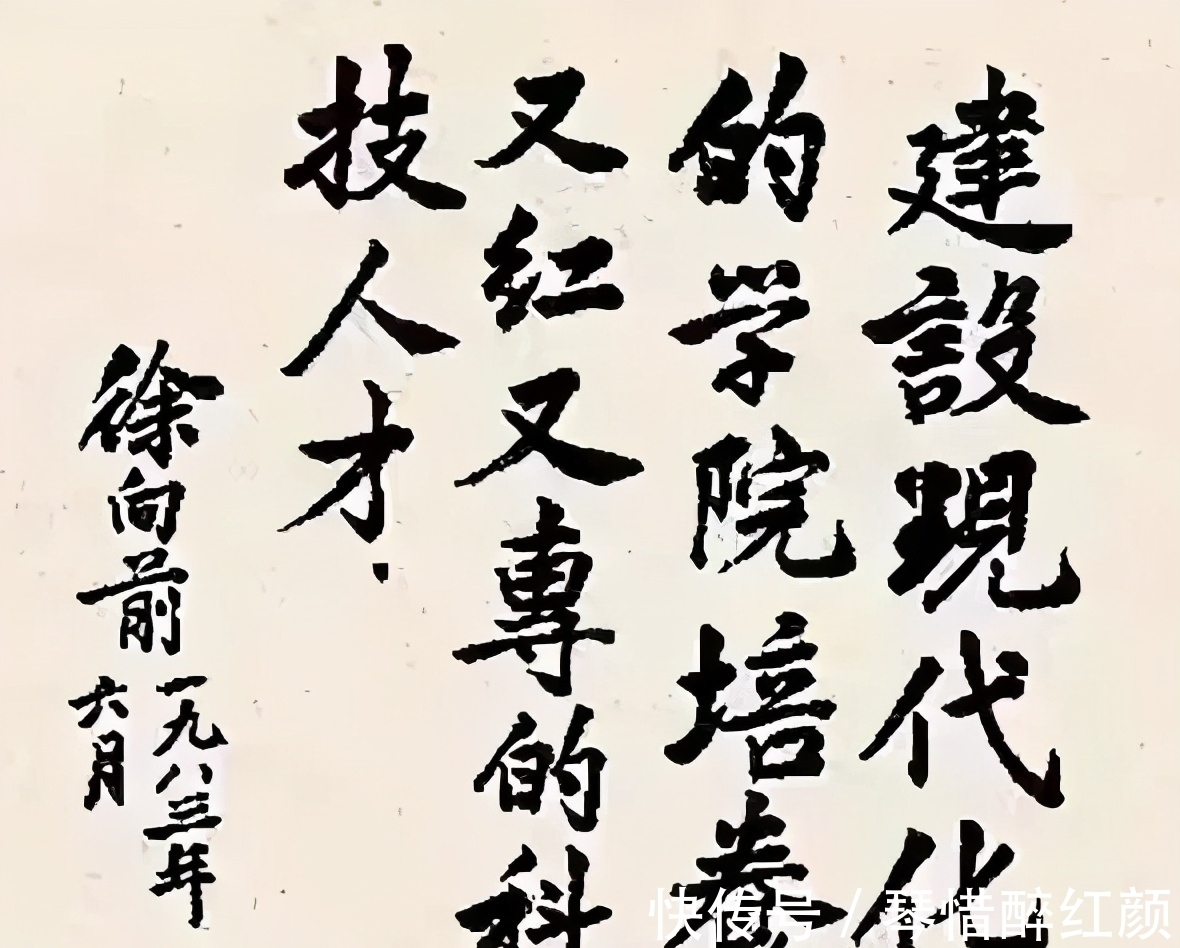 建設現代化
的学院培養
又红又専的科
技人才.
徐向前
一九八三年
六月
快传号/琴惜醉红颜